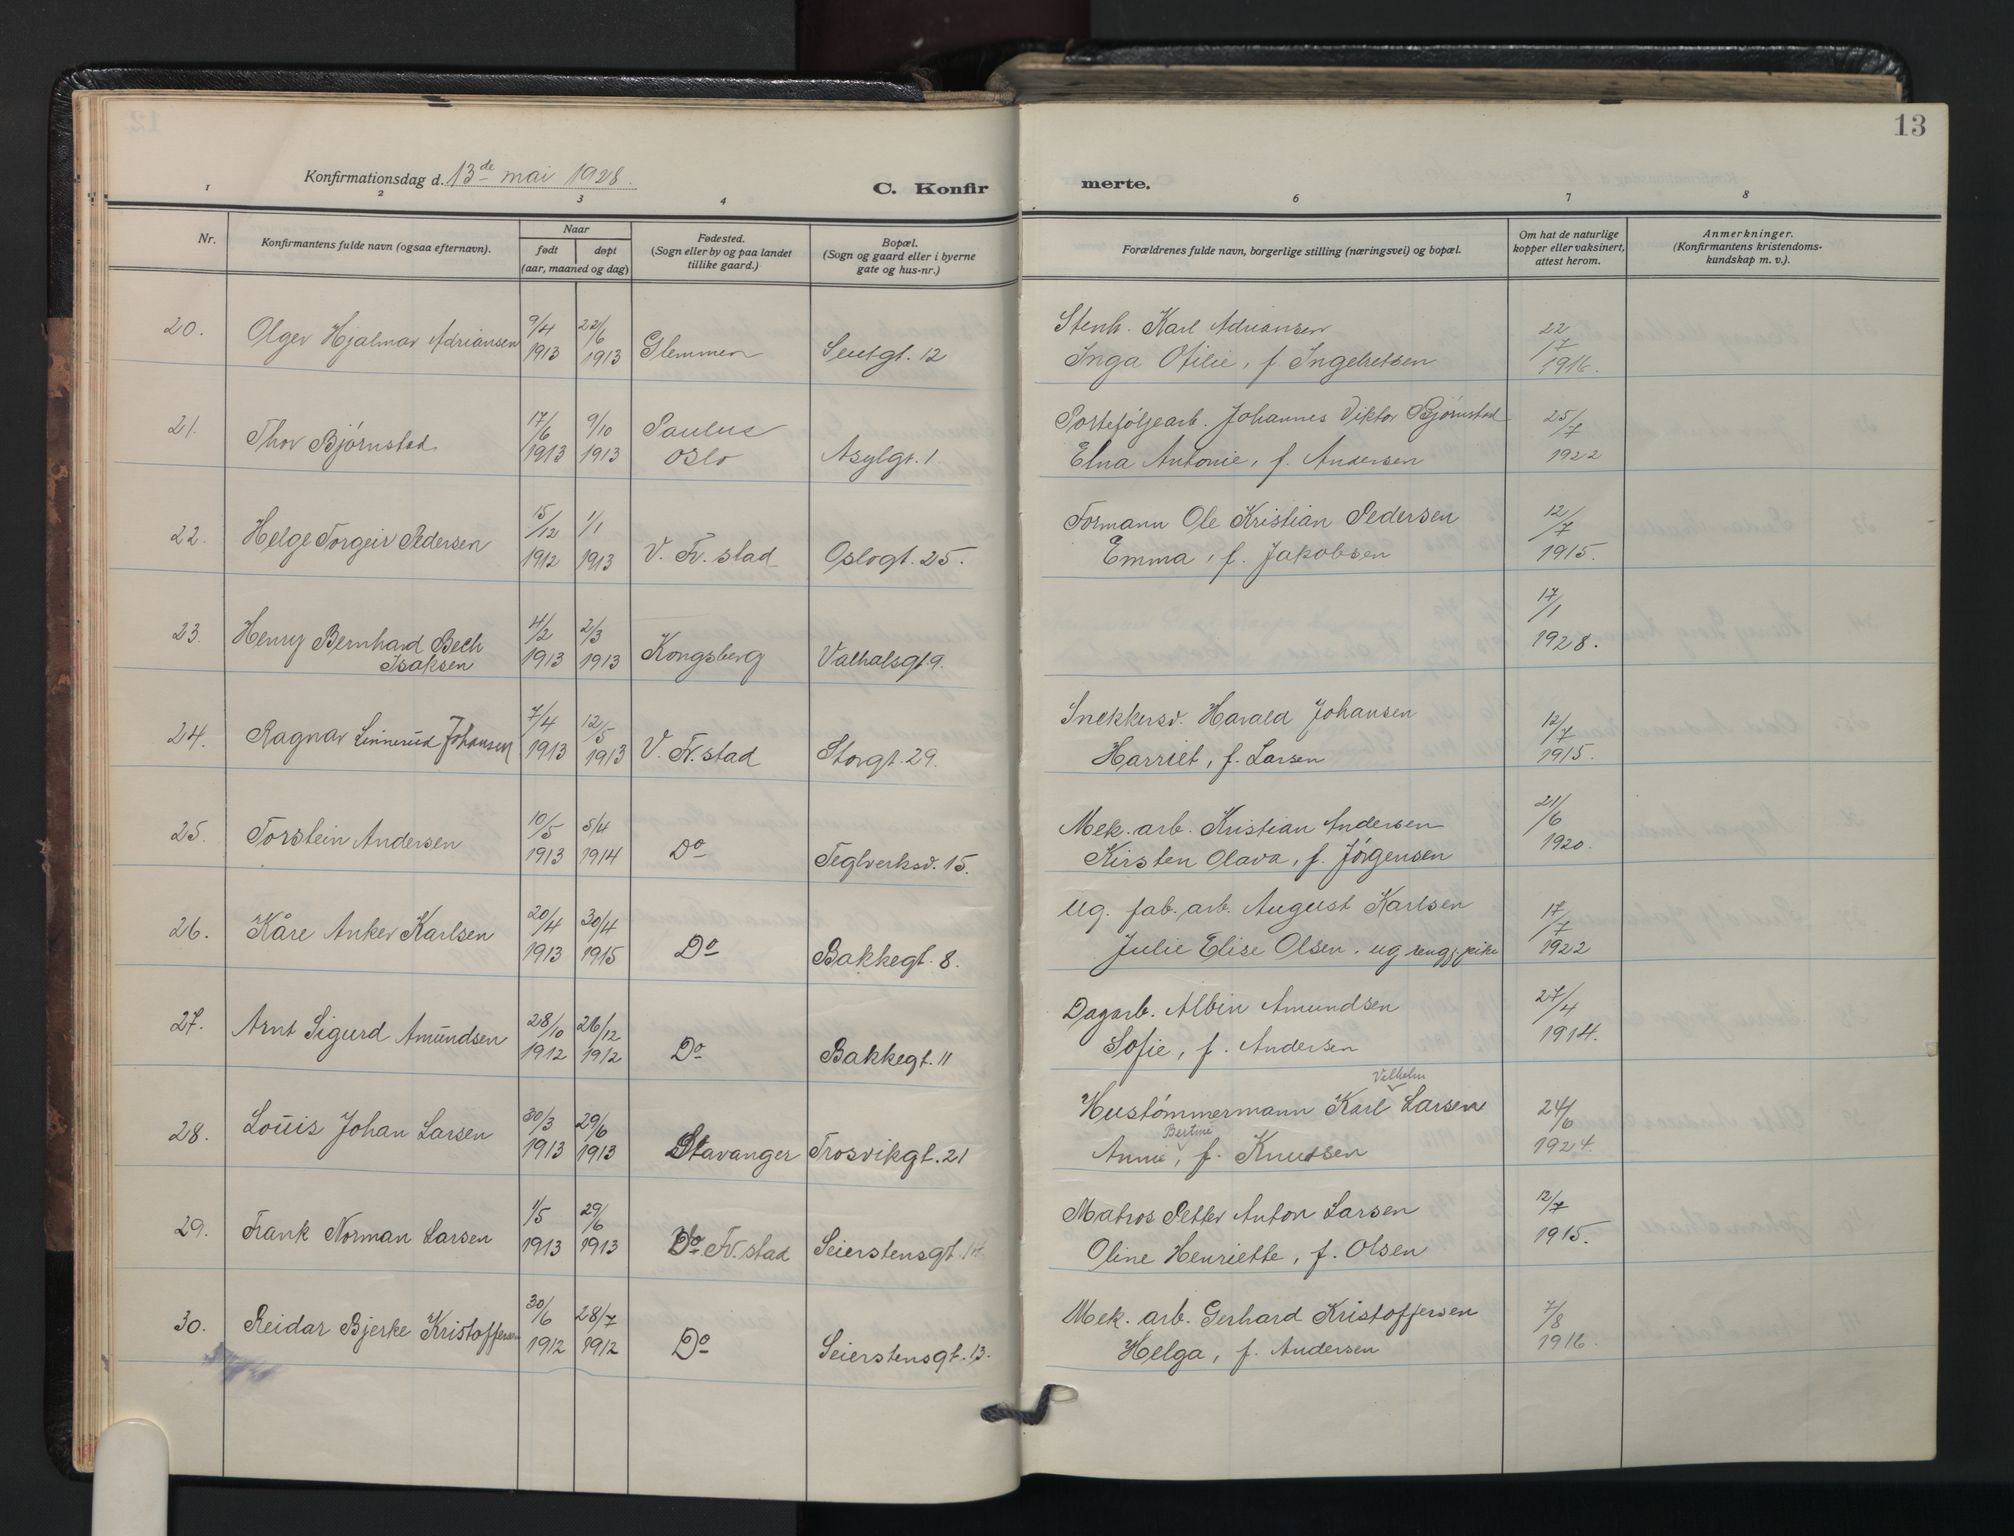 13
Konfirmationsdag d. 13de mai 1928.
C. Konfir
merte.
1 2 3 4 6 7 8
Nr.
Konfirmantens fulde navn (ogsaa efternavn).
Naar
født døpt
(aar, maaned og dag)
Fødested.
(Sogn eller by og paa landet
tillike gaard.)
Bopæl.
(Sogn og gaard eller i byerne
gate og hus-nr.)
Forældrenes fulde navn, borgerlige stilling (næringsvei) og bopæl.
Om hat de naturlige
kopper eller vaksinert,
attest herom.
Anmerkninger.
(Konfirmantens kristendoms-
kundskap m. v.).
20. Olger Hjalmar Adriansen 9/4 1913 22/6 1913 Glemmen 12
Stenh. Karl Adriansen
Inga Otilie, f. Ingebretsen
22/7 1916.
21. Thor Bjørnstad 17/6 1913 9/10 1913 Paulus Oslo Asylgt. 1
Porteføljearb. Johannes Viktor Bjørnstad
Elna Antonie, f. Andersen
25/7 1922
22. Helge Torgeir Pedersen 15/12 1912 1/1 1913 V. Fr. stad Oslogt. 25.
Formann Ole Kristian Pedersen
Emma, f. Jakobsen
12/7 1915.
23. Henry Bernhard Bech
Isaksen 4/2 1913 2/3 1913 Kongsberg Valhalsgt. 9.
17/1 1928.
24. Ragnar Linnerud Johansen 7/4 1913 12/5 1913 V. Fr. stad Storgt. 29.
Snekkersv. Harald Johansen
Harriet, f. Larsen
12/7 1915.
25. Torstein Andersen 10/5 1913 5/4 1914 Do Teglverksv. 15.
Mek. arb. Kristian Andersen
Kirsten Olava, f. Jørgensen
21/6 1920.
26. Kåre Anker Karlsen 20/4 1913 30/4 1915 Do Bakkegt. 8.
Ug. fab. arb. August Karlsen
Julie Elise Olsen. ug rengj. pike
17/7 1922
27. Arnt Sigurd Amundsen 28/10 1912 26/12 1912 Do Bakkegt. 11
Dagarb. Albin Amundsen
Sofie, f. Andersen
27/4 1914.
28. Louis Johan Larsen 30/3 1913 29/6 1913 Stavanger Trosvikgt. 21
Hustømmermann Karl Vilhelm Larsen
Annie Bertine, f. Knudsen
24/6 1924.
29. Frank Norman Larsen 1/5 1913 29/6 1913 V. Fr. stad Seierstensgt. 14.
Matros Petter Anton Larsen
Oline Henriette, f. Olsen
12/7 1915.
30. Reidar Bjerke Kristoffersen 30/6 1912 28/7 1912 Do Seierstensgt. 13.
Mek. arb. Gerhard Kristoffersen
Helga, f. Andersen
7/8 1916.